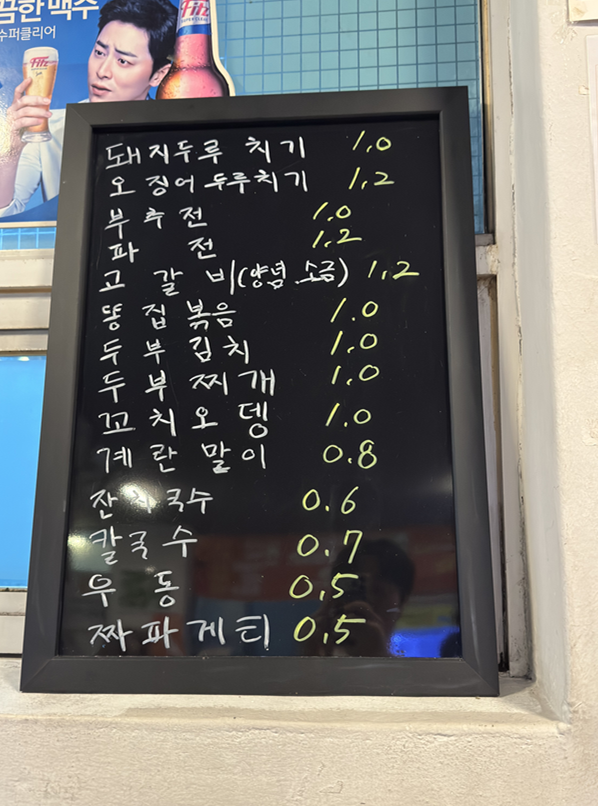 끔한 맥주
수퍼클리어
Fitz
Fitz
SUPER CLEAR
돼지두루치기 1.0
오징어두루치기 1.2
부추전 1.0
파전 1.2
고갈비(양념.소금) 1.2
똥집볶음 1.0
두부김치 1.0
두부찌개 1.0
꼬치오뎅 1.0
계란말이 0.8
잔치국수 0.6
칼국수 0.7
우동 0.5
짜파게티 0.5